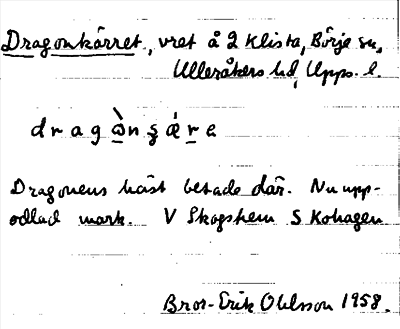 Dragonkärret, vret å 2 Klista, Börje sn,
Ulleråkers hd, Upps. l.
dragònʂǽre
Dragonens häst betade där. Nu upp-
odlad mark. V Skogshem S Kohagen
Bror-Erik Ohlsson 1958.